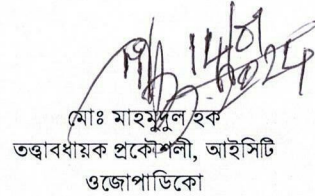 মোঃ মাহমুদুল হক
তত্ত্বাবধায়ক প্রকৌশলী, আইসিটি
ওজোপাডিকো